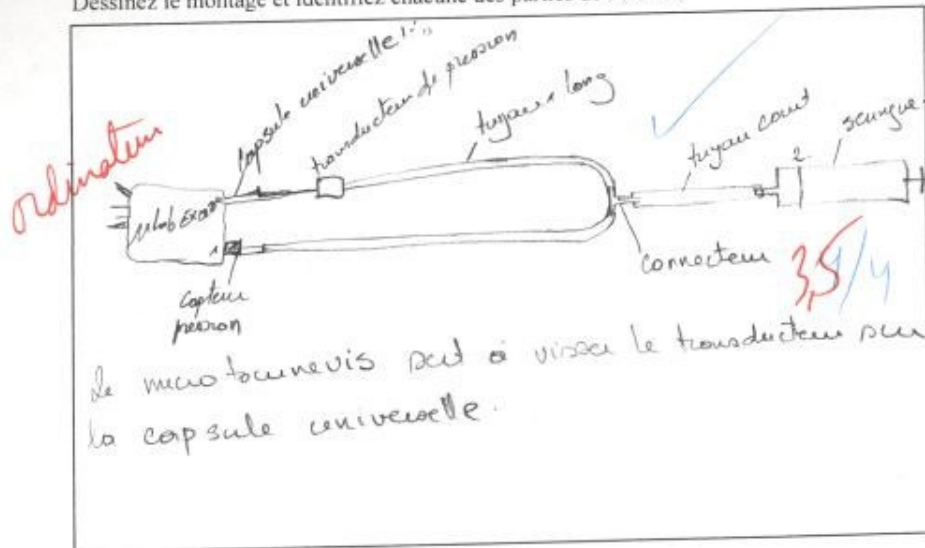 Dessinez le montage et identifiez chacune des parties de
capsule universelle
transducteur de pression
tuyau + long
tuyau court
seringue
2
ordinateur
µLab
1
capteur
pression
connecteur
3,5/4
Le microtournevis sert à visser le transducteur sur
la capsule universelle.